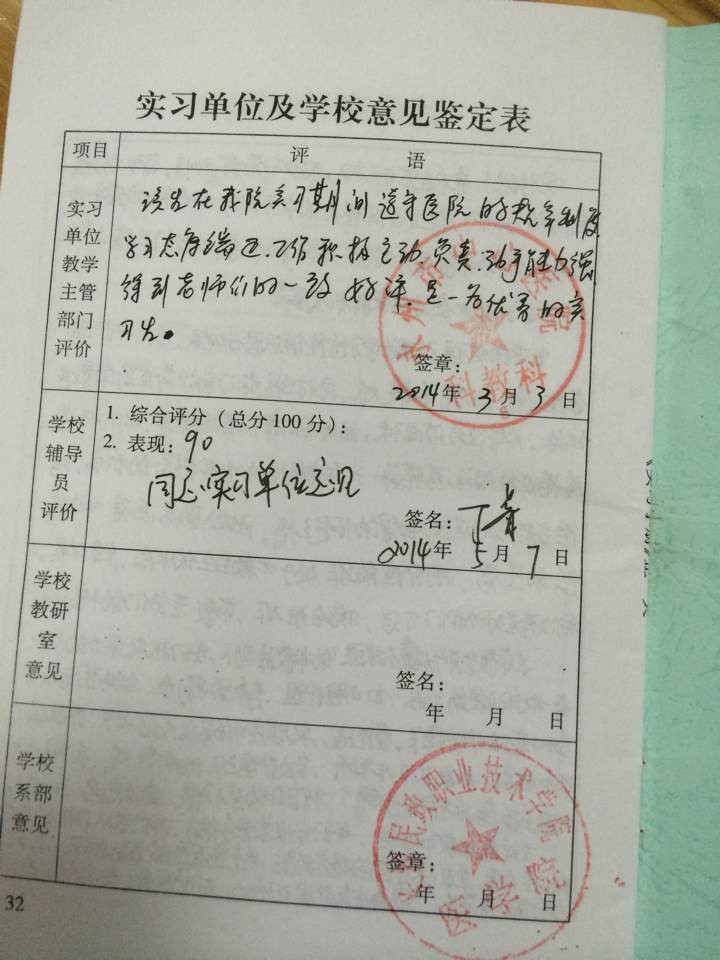 实习单位及学校意见鉴定表
项目 评语
实习单位教学主管部门评价
该生在我院实习期间遵守医院的规章制度
学习态度端正.工作积极主动.负责.动手能力强
得到老师们的一致好评.是一名优秀的实
习生。
签章:
科教科
2014年3月3日
学校辅导员评价
1. 综合评分（总分100分）:
2. 表现: 90
同意实习单位意见
签名:
2014年5月7日
学校教研室意见
签名:
年 月 日
学校系部意见
民族职业技术学院
医学院
签章:
年 月 日
32